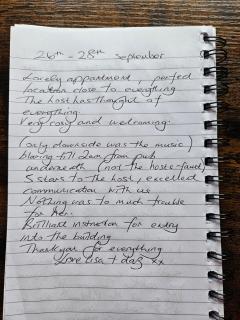 26th - 28th September
Lovely appartment, perfect
location close to everything
The host has thought of
everything.
Very cosy and welcoming.
(only downside was the music)
blaring till 2am from pub
underneath (not the hosts fault)
5 stars to the host, excelled
communication with us
Nothing was to much trouble
for her.
Brilliant instruction for entry
into the building
Thankyou for everything
Love Lisa + daz xx